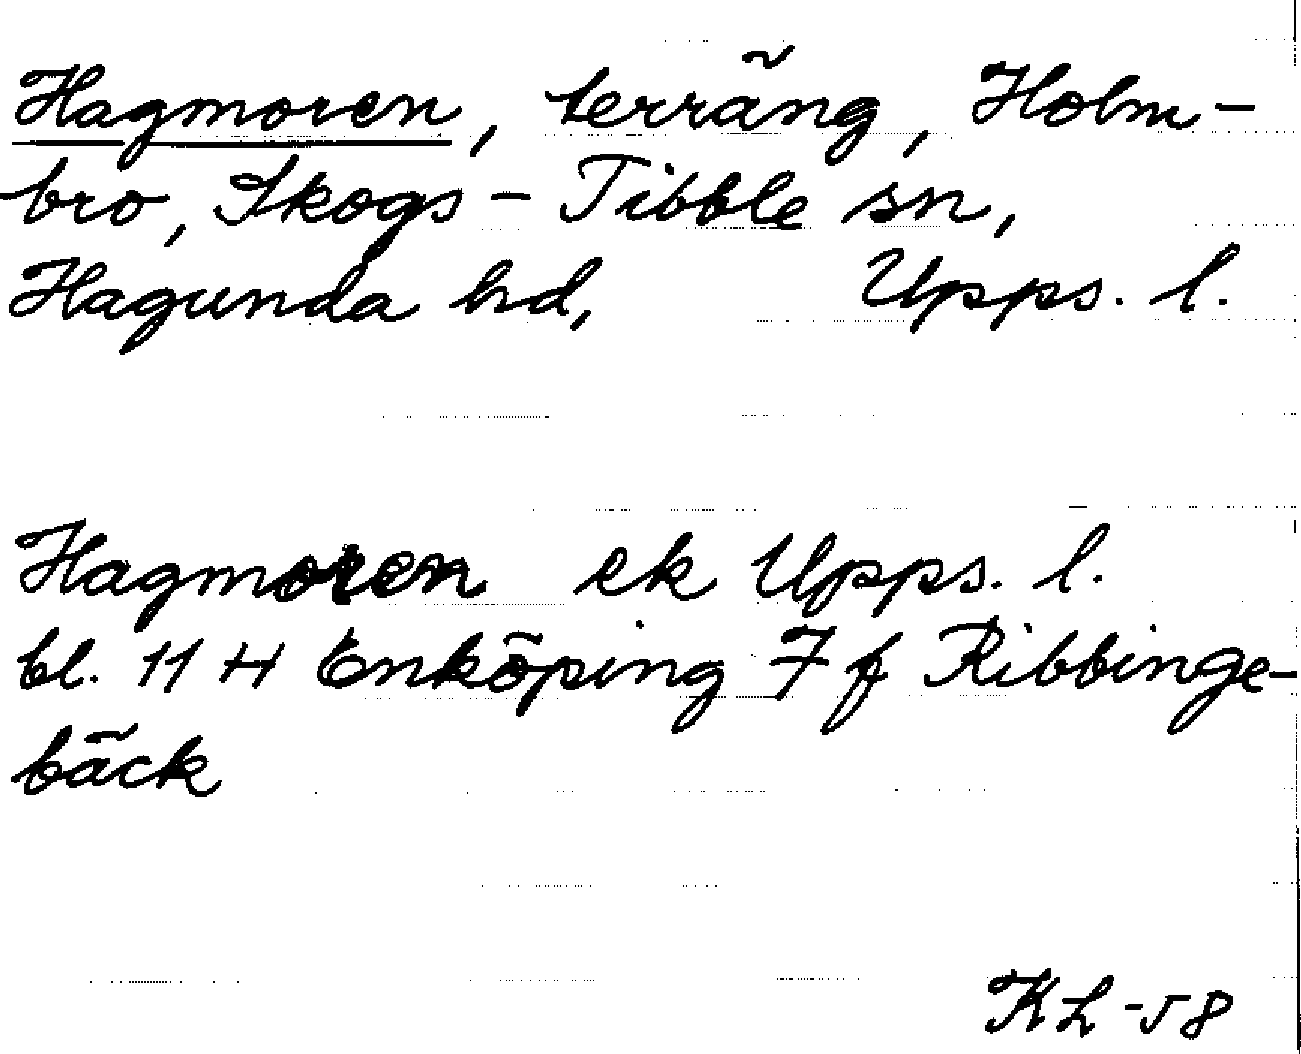 Hagmoren, terräng, Holm-
bro, Skogs-Tibble sn,
Hagunda hd, Upps. l.
Hagmoren ek Upps. l.
bl. 11 H Enköping 7 f Ribbinge-
bäck
KL -58